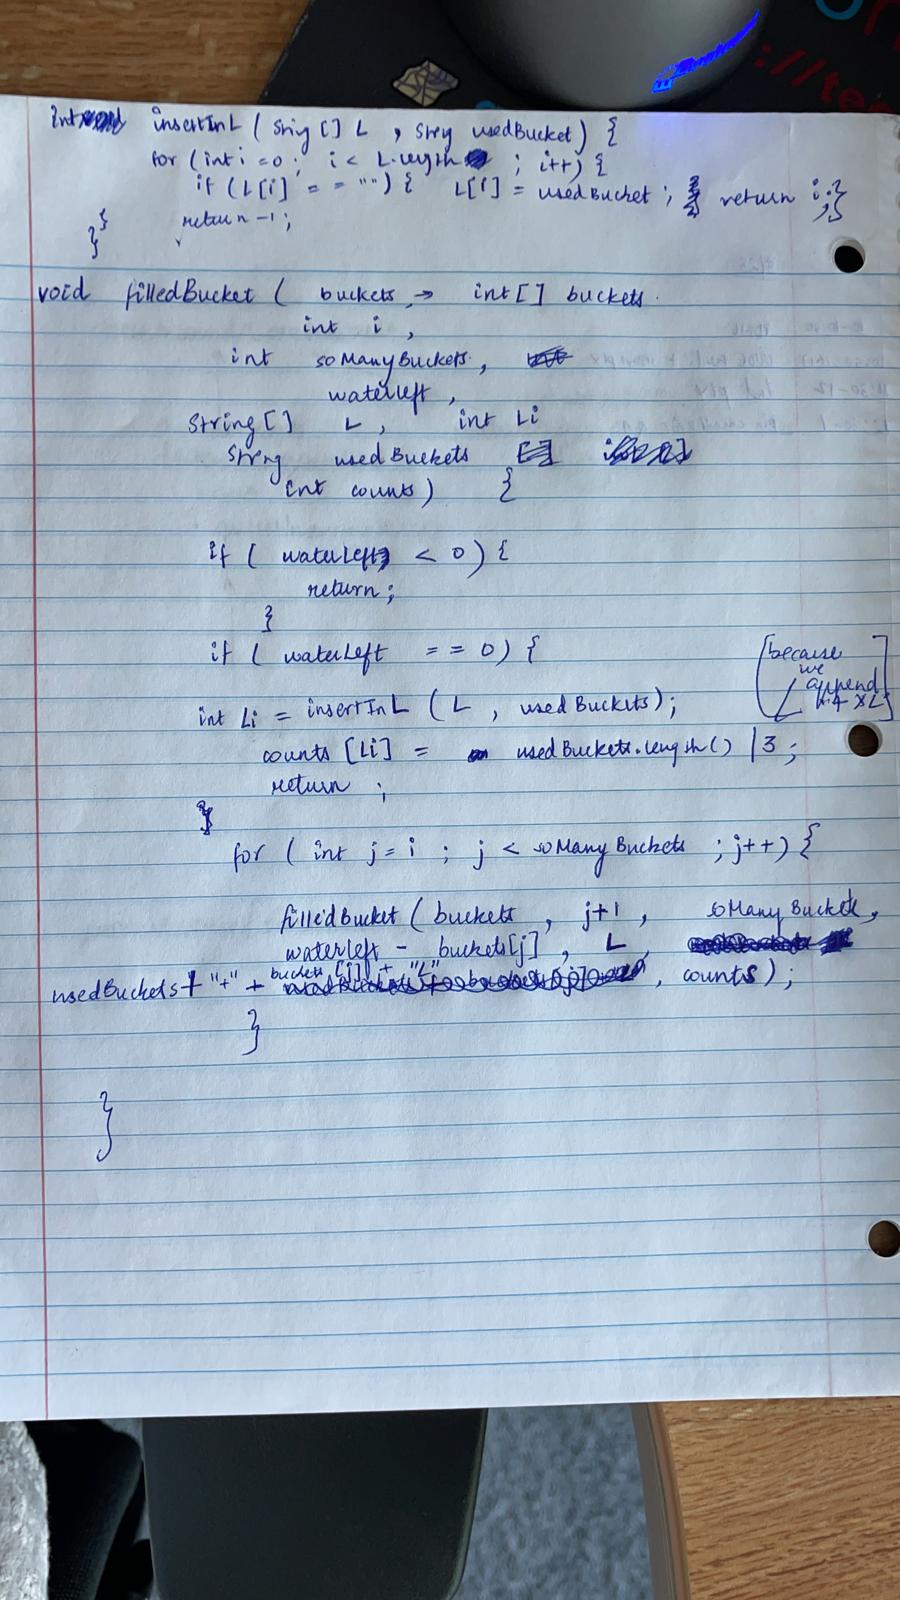 Int insertInL ( Sring [] L , Streg usedBucket) {
for (int i = 0 ; i < L.length ; i++) {
if (L[i] == "") { L[i] = usedBucket ; return i;}
}
return -1;
}
void filledBucket ( buckets → int [] buckets.
int i ,
int soManyBuckets ,
waterLeft ,
String [] L , int Li
Streng usedBuckets
int counts ) {
if ( waterLeft < 0 ) {
return ;
}
if ( waterLeft == 0) {
[because
we
append
int Li = insertInL ( L , usedBuckets);
counts [Li] = usedBuckets.length() / 3 ;
return ;
}
for ( int j = i ; j < soManyBuckets ; j++) {
filledBucket ( buckets , j+1 , soManyBucket,
waterLeft - buckets[j] , L ,
usedBuckets + "+" + buckets [j] + "L" , counts );
}
}